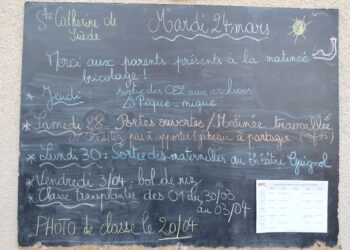 Ste Catherine de
Suède
Mardi 24 mars
Merci aux parents présents à la matinée
bricolage !
* Jeudi : Sortie des CE2 aux archives
⚠ Pique-nique
* Samedi 28 : Portes ouvertes / Matinée travaillée
N'hésitez pas à apporter 1 gâteau à partager
* Lundi 30 : Sortie des maternelles au théâtre Guignol
* Vendredi 3/04 : bol de riz
* Classe transplantée des CM du 30/03
au 03/04
PHOTO de classe le 20/04